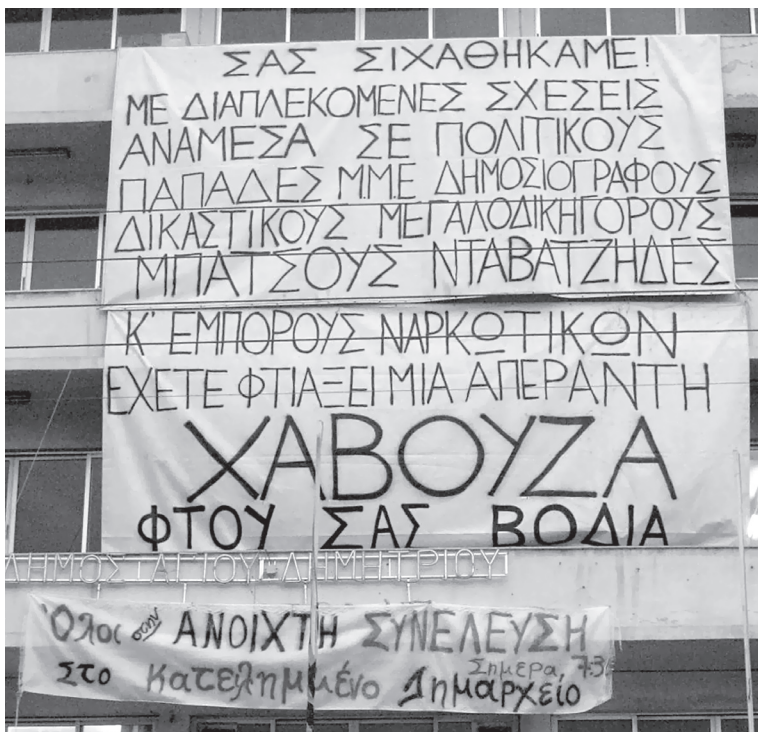 ΣΑΣ ΣΙΧΑΘΗΚΑΜΕ!
ΜΕ ΔΙΑΠΛΕΚΟΜΕΝΕΣ ΣΧΕΣΕΙΣ
ΑΝΑΜΕΣΑ ΣΕ ΠΟΛΙΤΙΚΟΥΣ
ΠΑΠΑΔΕΣ ΜΜΕ ΔΗΜΟΣΙΟΓΡΑΦΟΥΣ
ΔΙΚΑΣΤΙΚΟΥΣ ΜΕΓΑΛΟΔΙΚΗΓΟΡΟΥΣ
ΜΠΑΤΣΟΥΣ ΝΤΑΒΑΤΖΗΔΕΣ
Κ' ΕΜΠΟΡΟΥΣ ΝΑΡΚΩΤΙΚΩΝ
ΕΧΕΤΕ ΦΤΙΑΞΕΙ ΜΙΑ ΑΠΕΡΑΝΤΗ
ΧΑΒΟΥΖΑ
ΦΤΟΥ ΣΑΣ ΒΟΔΙΑ
ΔΗΜΟΣ ΑΓΙΟΥ ΔΗΜΗΤΡΙΟΥ
Όλοι στην ΑΝΟΙΧΤΗ ΣΥΝΕΛΕΥΣΗ
Σήμερα,
στο κατελημμένο Δημαρχείο